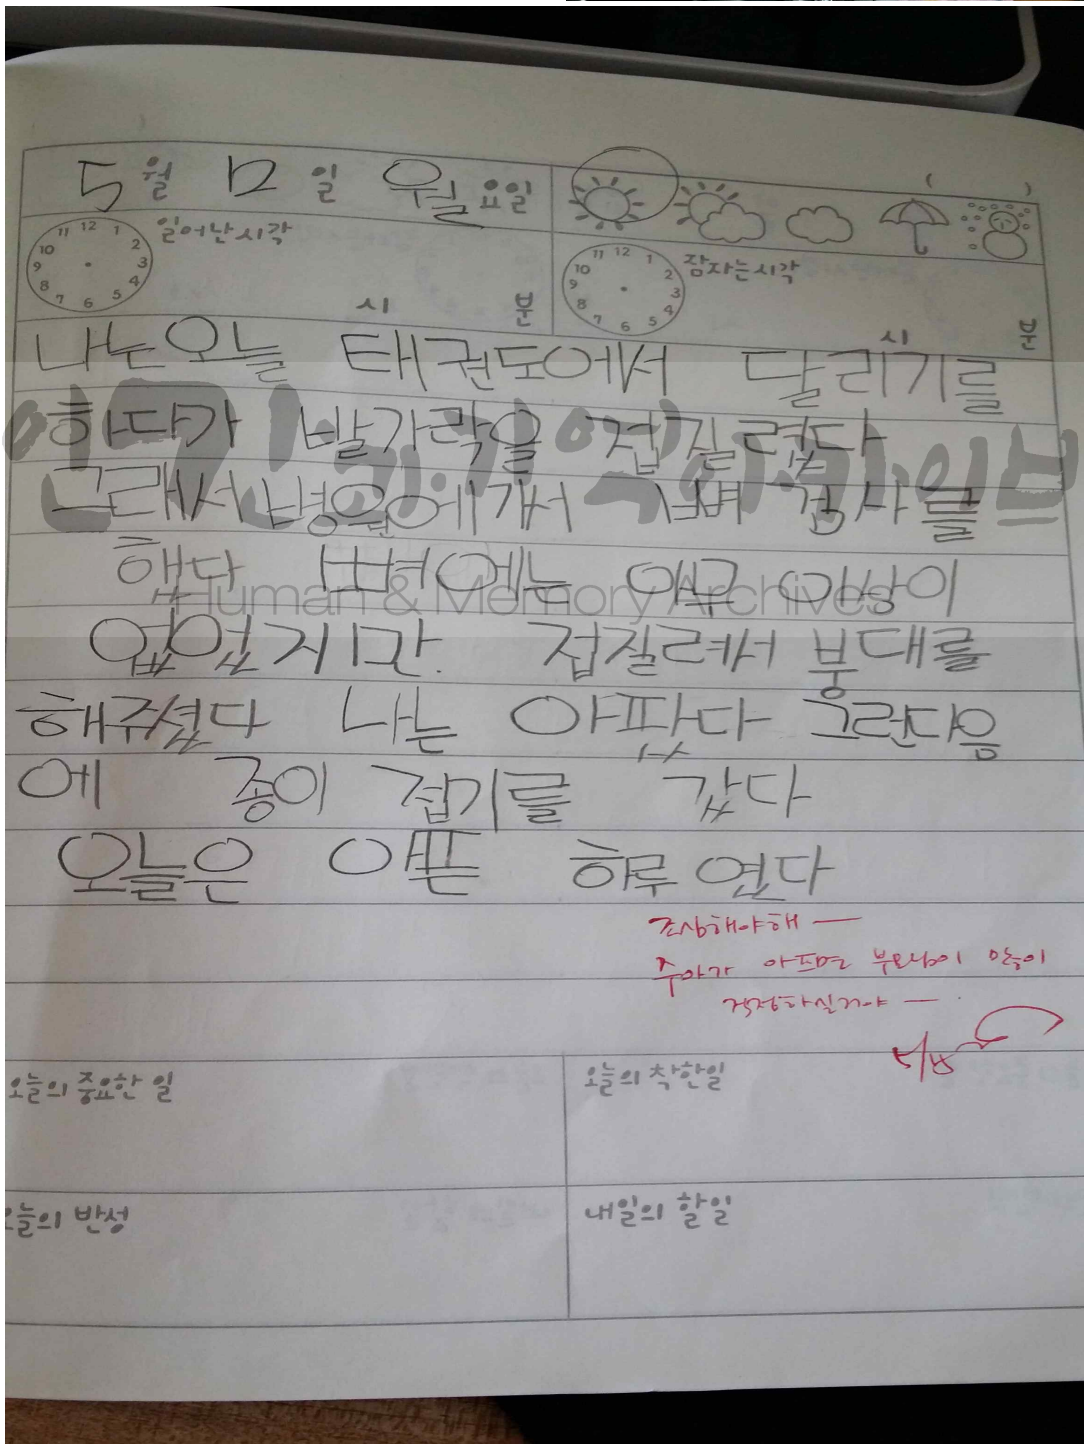 5월 12일 월요일
( )
일어난시각
11 12 1 10 2 9 3 8 4 7 6 5
시 분
잠자는시각
11 12 1 10 2 9 3 8 4 7 6 5
시 분
나는오늘 태권도에서 달리기를
하다가 발가락을 접질렀다
그래서 병원에개서 검사를
했다 뼈에는 이상이
없었지만. 접질려서 붕대를
해쥬셨다 나는 아팠다 그런다음
에 종이 접기를 갔다
오늘은 아픈 하루 였다
인간과기억아카이브
Human & Memory Archives
조심해야해 —
주아가 아프면 부모님이 많이
걱정하실거야 —
오늘의 중요한 일
오늘의 착한일
오늘의 반성
내일의 할일